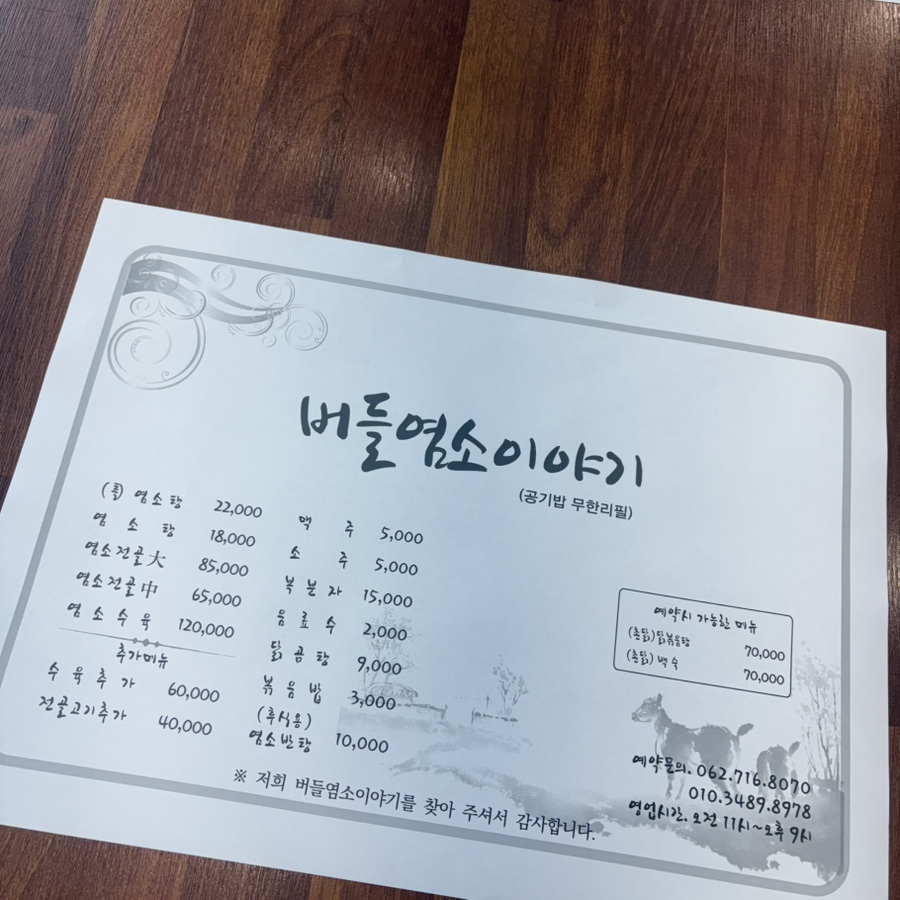 버들염소이야기
(공기밥 무한리필)
(특) 염소탕 22,000
염소탕 18,000
염소전골大 85,000
염소전골中 65,000
염소수육 120,000
추가메뉴
수육추가 60,000
전골고기추가 40,000
맥주 5,000
소주 5,000
복분자 15,000
음료수 2,000
닭곰탕 9,000
볶음밥 3,000
(후식용)
염소반탕 10,000
예약시 가능한 메뉴
(촌닭)닭볶음탕 70,000
(촌닭) 백숙 70,000
예약문의. 062.716.8070
010.3489.8978
영업시간. 오전 11시~오후 9시
※ 저희 버들염소이야기를 찾아 주셔서 감사합니다.